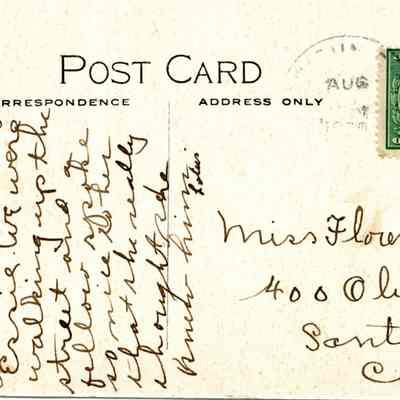 POST CARD
RRESPONDENCE
ADDRESS ONLY
AUG
Ernie. We were
walking up the
street and a
fellow spoke
so nice to her
that she really
thought she
knew him.
Miss Flore
400 Ol
Santa
C